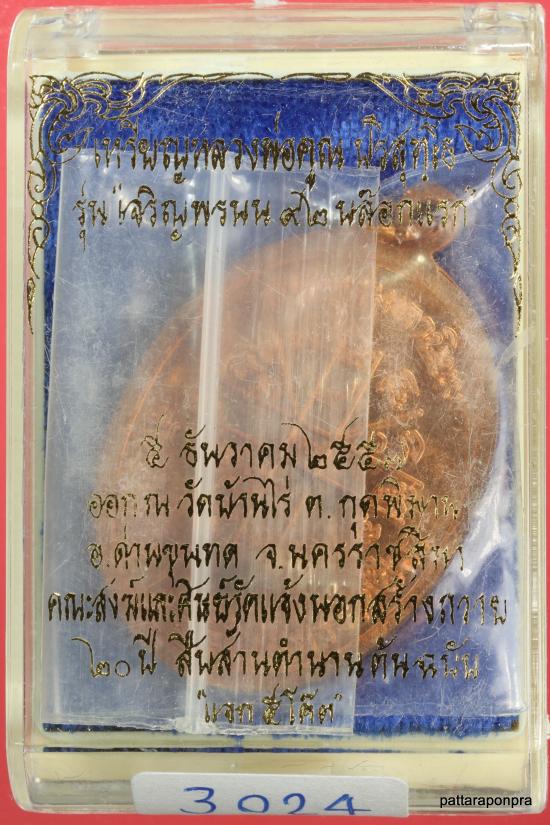 เหรียญหลวงพ่อคูณ ปริสุทฺโธ
รุ่น "เจริญพรบน ๙๒ บล๊อกแรก"
๕ ธันวาคม ๒๕๕๗
ออก ณ วัดบ้านไร่ ต.กุดพิมาน
อ.ด่านขุนทด จ.นครราชสีมา
คณะสงฆ์และศิษย์วัดแจ้งนอกสร้างถวาย
๒๐ ปี สืบสานตำนานต้นฉบับ
"แจก ๕ โค๊ต"
3024
pattaraponpra